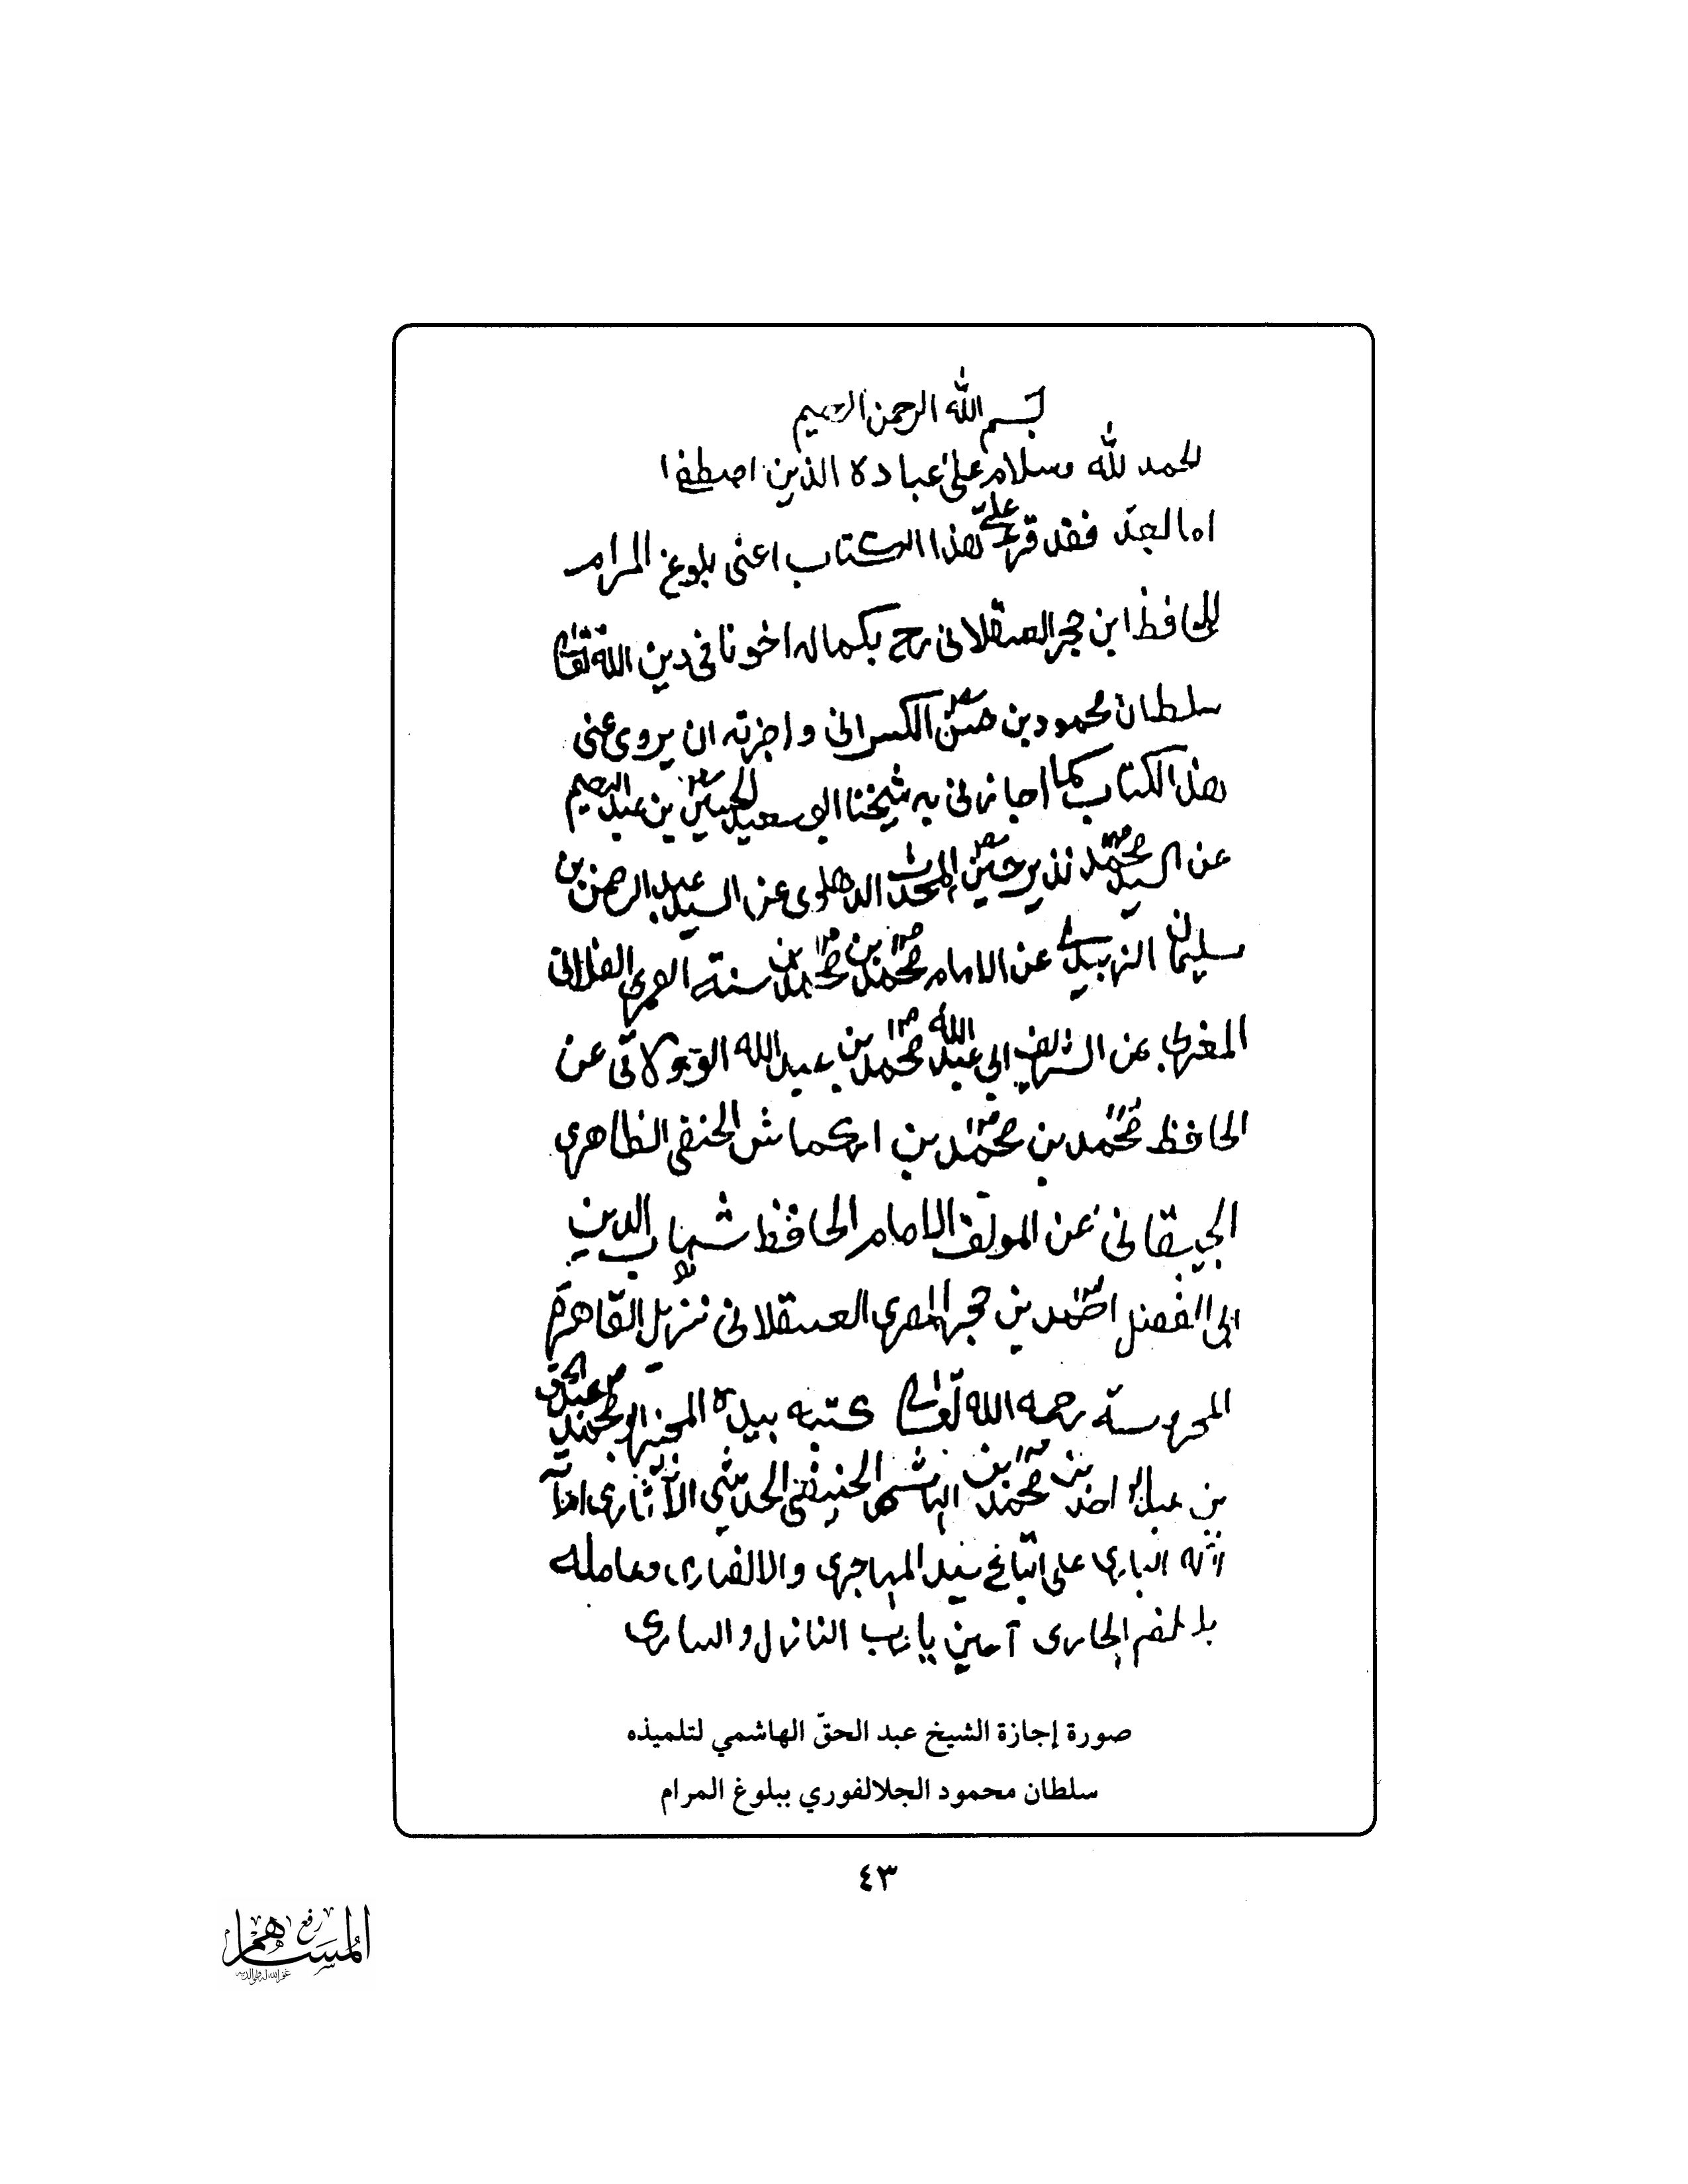 بسم الله الرحمن الرحيم
الحمد لله وسلام على عباده الذين اصطفا
اما بعد فقد قرء علي هذا الكتاب اعنى بلوغ المرام
للحافظ ابن حجر العسقلانى رح بكماله اخونا فى دين الله تعالى
سلطان محمود بن حسن الكسرانى واجزته ان يروى عنى
هذا الكتاب كما اجازنى به شيخنا ابو سعيد الحسين بن عبد الرحيم
عن السيد محمد نذير حسين المحدث الدهلوى عن السيد عبد الرحمن بن
سليمان الزبيدى عن الامام محمد بن محمد بن سنة العمرى الفلانى
المغربى عن الشريف ابى عبد الله محمد بن عبد الله الوولاتى عن
الحافظ محمد بن محمد بن اركماش الحنفى الظاهرى
عن المولف الامام الحافظ شهاب الدين
ابى الفضل احمد بن حجر المصرى العسقلانى نزيل القاهرة
المحروسة رحمه الله تعالى كتبه بيده المجيز ابو محمد عبد الحق
بن عبد الواحد بن محمد بن الهاشمى الحنيفى الحديثى الآثارى
البارى على اتباع سيد المهاجرى والانصارى وعامله
الجارى آمين يا رب النازل والسارى
صورة إجازة الشيخ عبد الحقّ الهاشمي لتلميذه
سلطان محمود الجلالفوري ببلوغ المرام
٤٣
المساهم
رفع
غفر الله له ولوالديه